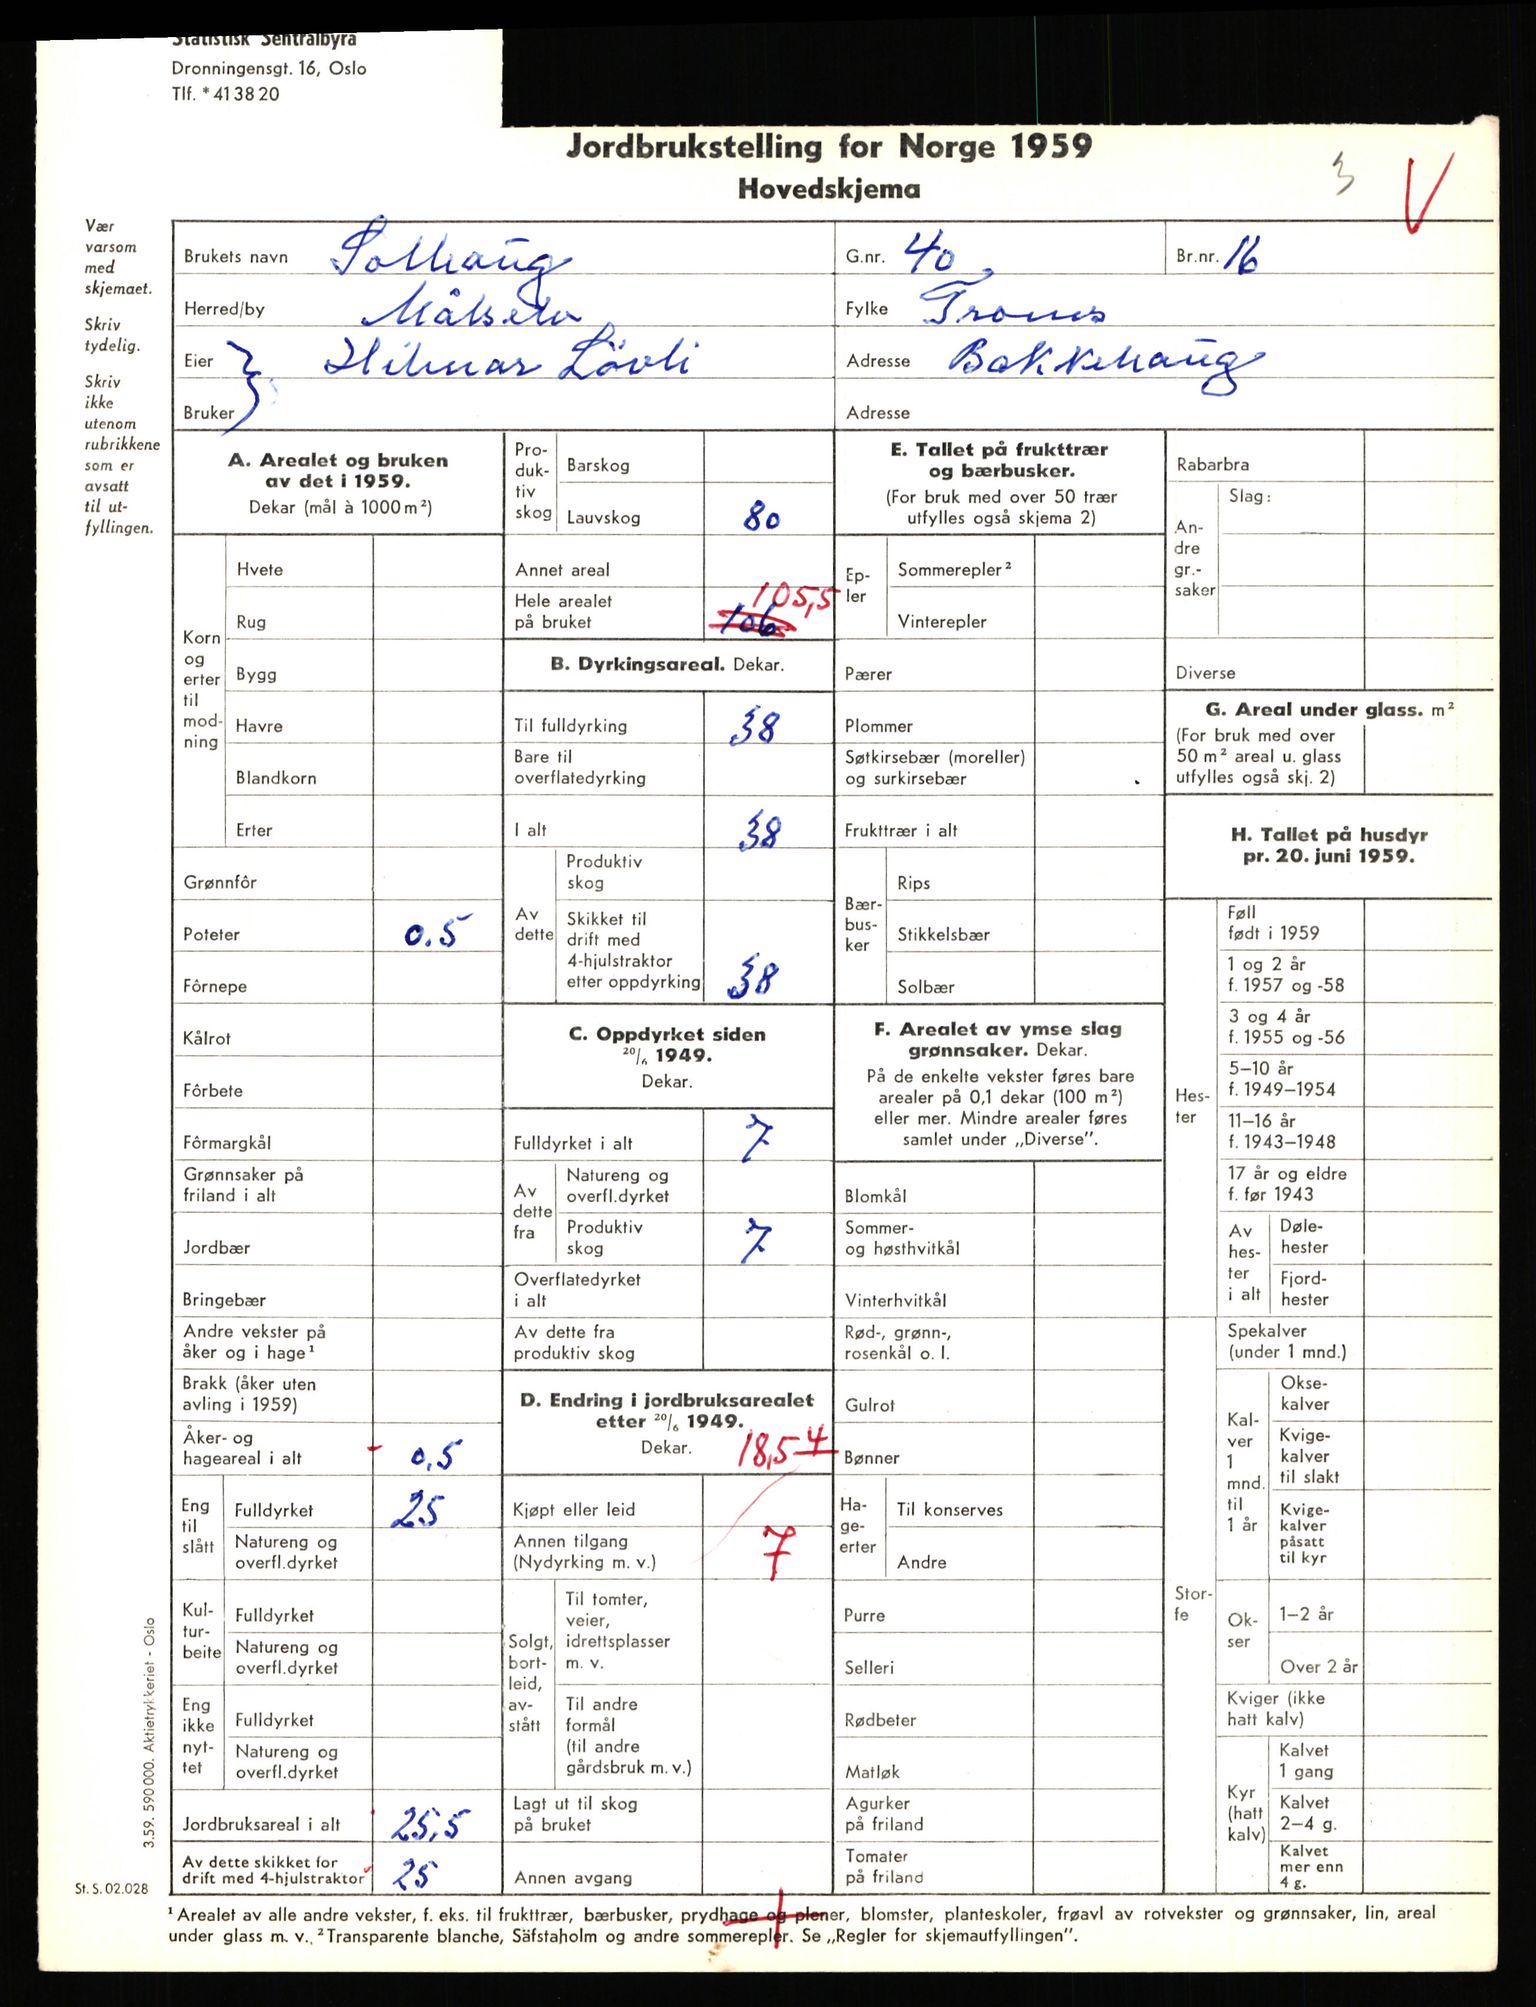 Statistisk Sentralbyrå
Dronningensgt. 16, Oslo
Tlf. * 41 38 20
Jordbrukstelling for Norge 1959
Hovedskjema
3
V
Vær
varsom
med
skjemaet.
Skriv
tydelig.
Skriv
ikke
utenom
rubrikkene
som er
avsatt
til ut-
fyllingen.
Brukets navn Solhaug G.nr. 40 Br.nr. 16
Herred/by Målselv Fylke Troms
Eier } Hilmar Lövli Adresse Bakkehaug
Bruker Adresse
A. Arealet og bruken
av det i 1959.
Dekar (mål à 1000 m²)
Korn
og
erter
til
mod-
ning
Hvete
Rug
Bygg
Havre
Blandkorn
Erter
Grønnfôr
Poteter 0.5
Fôrnepe
Kålrot
Fôrbete
Fôrmargkål
Grønnsaker på
friland i alt
Jordbær
Bringebær
Andre vekster på
åker og i hage¹
Brakk (åker uten
avling i 1959)
Åker- og
hageareal i alt 0,5
Eng
til
slått
Fulldyrket 25
Natureng og
overfl.dyrket
Kul-
tur-
beite
Fulldyrket
Natureng og
overfl.dyrket
Eng
ikke
nyt-
tet
Fulldyrket
Natureng og
overfl.dyrket
Jordbruksareal i alt 25,5
Av dette skikket for
drift med 4-hjulstraktor 25
Pro-
duk-
tiv
skog
Barskog
Lauvskog 80
Annet areal
Hele arealet
på bruket 106 105,5
B. Dyrkingsareal. Dekar.
Til fulldyrking 38
Bare til
overflatedyrking
I alt 38
Av
dette
Produktiv
skog
Skikket til
drift med
4-hjulstraktor
etter oppdyrking 38
C. Oppdyrket siden
20/6 1949.
Dekar.
Fulldyrket i alt 7
Av
dette
fra
Natureng og
overfl.dyrket
Produktiv
skog 7
Overflatedyrket
i alt
Av dette fra
produktiv skog
D. Endring i jordbruksarealet
etter 20/6 1949.
Dekar. 18,5 4
Kjøpt eller leid
Annen tilgang
(Nydyrking m. v.) 7
Solgt,
bort-
leid,
av-
stått
Til tomter,
veier,
idrettsplasser
m. v.
Til andre
formål
(til andre
gårdsbruk m. v.)
Lagt ut til skog
på bruket
Annen avgang
E. Tallet på frukttrær
og bærbusker.
(For bruk med over 50 trær
utfylles også skjema 2)
Ep-
ler
Sommerepler²
Vinterepler
Pærer
Plommer
Søtkirsebær (moreller)
og surkirsebær
Frukttrær i alt
Bær-
bus-
ker
Rips
Stikkelsbær
Solbær
F. Arealet av ymse slag
grønnsaker. Dekar.
På de enkelte vekster føres bare
arealer på 0,1 dekar (100 m²)
eller mer. Mindre arealer føres
samlet under „Diverse”.
Blomkål
Sommer-
og høsthvitkål
Vinterhvitkål
Rød-, grønn-,
rosenkål o. l.
Gulrot
Bønner
Ha-
ge-
erter
Til konserves
Andre
Purre
Selleri
Rødbeter
Matløk
Agurker
på friland
Tomater
på friland
Rabarbra
An-
dre
gr.-
saker
Slag:
Diverse
G. Areal under glass. m²
(For bruk med over
50 m² areal u. glass
utfylles også skj. 2)
H. Tallet på husdyr
pr. 20. juni 1959.
Hes-
ter
Føll
født i 1959
1 og 2 år
f. 1957 og -58
3 og 4 år
f. 1955 og -56
5–10 år
f. 1949–1954
11–16 år
f. 1943–1948
17 år og eldre
f. før 1943
Av
hes-
ter
i alt
Døle-
hester
Fjord-
hester
Stor-
fe
Spekalver
(under 1 mnd.)
Kal-
ver
1
mnd.
til
1 år
Okse-
kalver
Kvige-
kalver
til slakt
Kvige-
kalver
påsatt
til kyr
Ok-
ser
1–2 år
Over 2 år
Kviger (ikke
hatt kalv)
Kyr
(hatt
kalv)
Kalvet
1 gang
Kalvet
2–4 g.
Kalvet
mer enn
4 g.
3.59. 590 000. Aktietrykkeriet - Oslo
St. S. 02.028
¹ Arealet av alle andre vekster, f. eks. til frukttrær, bærbusker, prydhage og plener, blomster, planteskoler, frøavl av rotvekster og grønnsaker, lin, areal
under glass m. v. ² Transparente blanche, Säfstaholm og andre sommerepler. Se „Regler for skjemautfyllingen”.